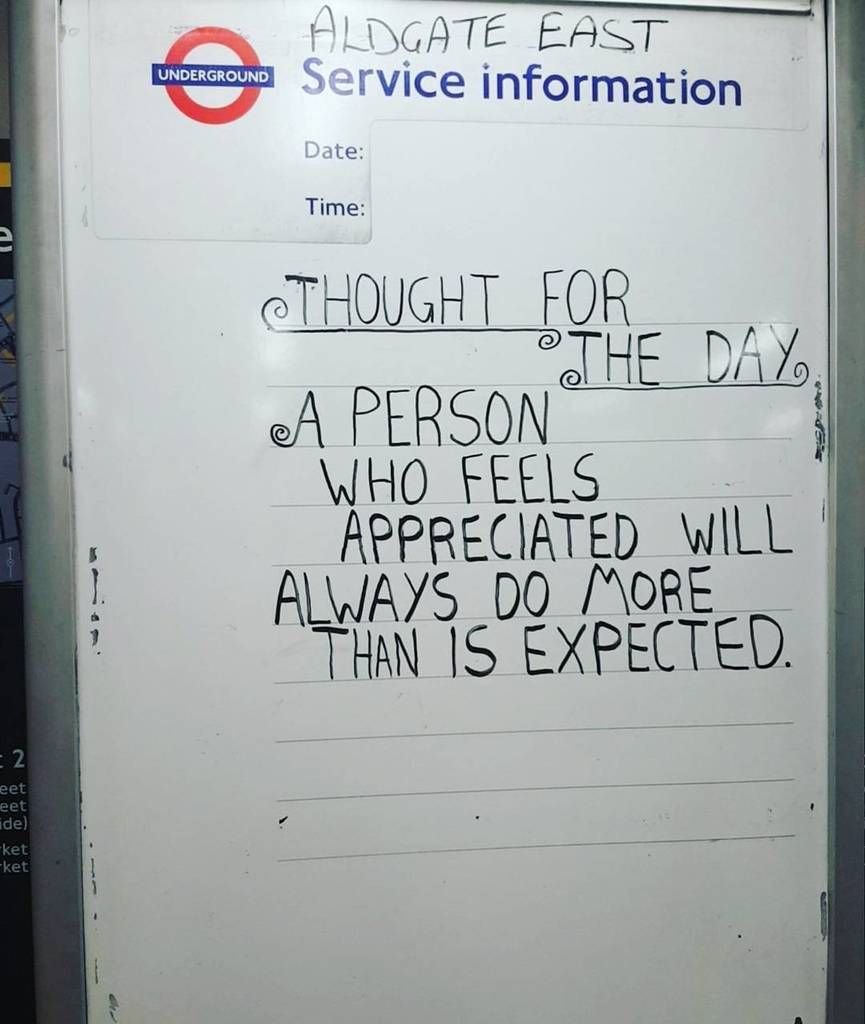 ALDGATE EAST
UNDERGROUND
Service information
Date:
Time:
THOUGHT FOR
THE DAY
A PERSON
WHO FEELS
APPRECIATED WILL
ALWAYS DO MORE
THAN IS EXPECTED.
e
: 2
eet
eet
ide)
ket
ket